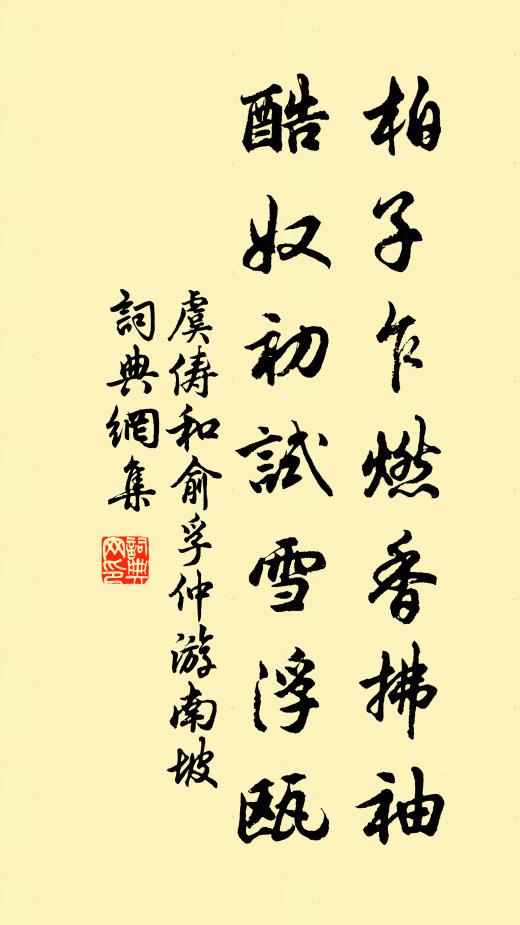 柏子乍燃香拂袖
酷奴初試雪浮甌
虞儔和俞孚仲游南坡
詞典網集
詞典网印